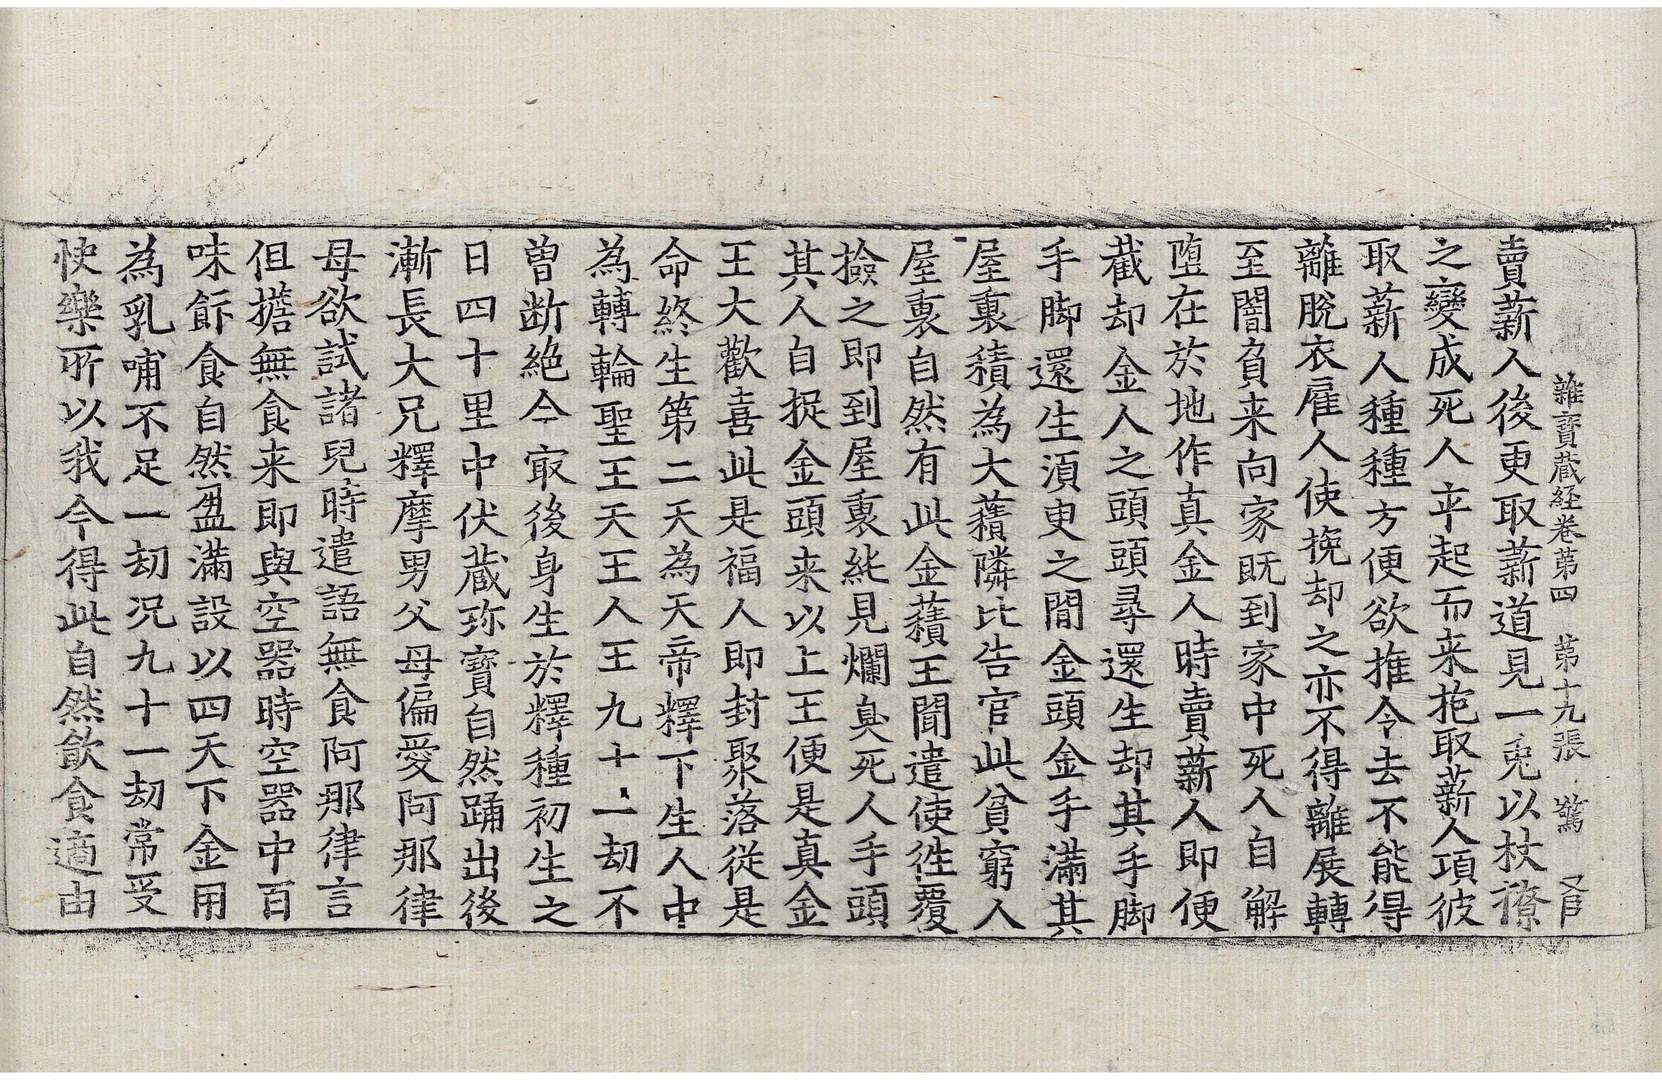 雜寶蔵経卷第四　第十九張　驚
賣薪人後更取薪道見一兎以杖撩
之變成死人卒起而来抱取薪人項彼
取薪人種種方便欲推令去不能得
離脫衣雇人使挽却之亦不得離展轉
至闇負来向家既到家中死人自解
墮在於地作真金人時賣薪人即便
截却金人之頭頭尋還生却其手脚
手脚還生湏臾之間金頭金手滿其
屋裏積為大𧂐隣比告官此貧窮人
屋裏自然有此金𧂐王聞遣使徃覆
撿之即到屋裏純見爛臭死人手頭
其人自捉金頭来以上王便是真金
王大歡喜此是福人即封聚落從是
命終生第二天為天帝釋下生人中
為轉輪聖王天王人王九十一劫不
曽断絶今㝡後身生於釋種初生之
日四十里中伏蔵珎寶自然踊出後
漸長大兄釋摩男父母偏愛阿那律
母欲試諸兒時遣語無食阿那律言
但擔無食来即與空器時空器中百
味餚食自然盈滿設以四天下金用
為乳哺不足一劫况九十一劫常受
快樂所以我今得此自然飲食適由